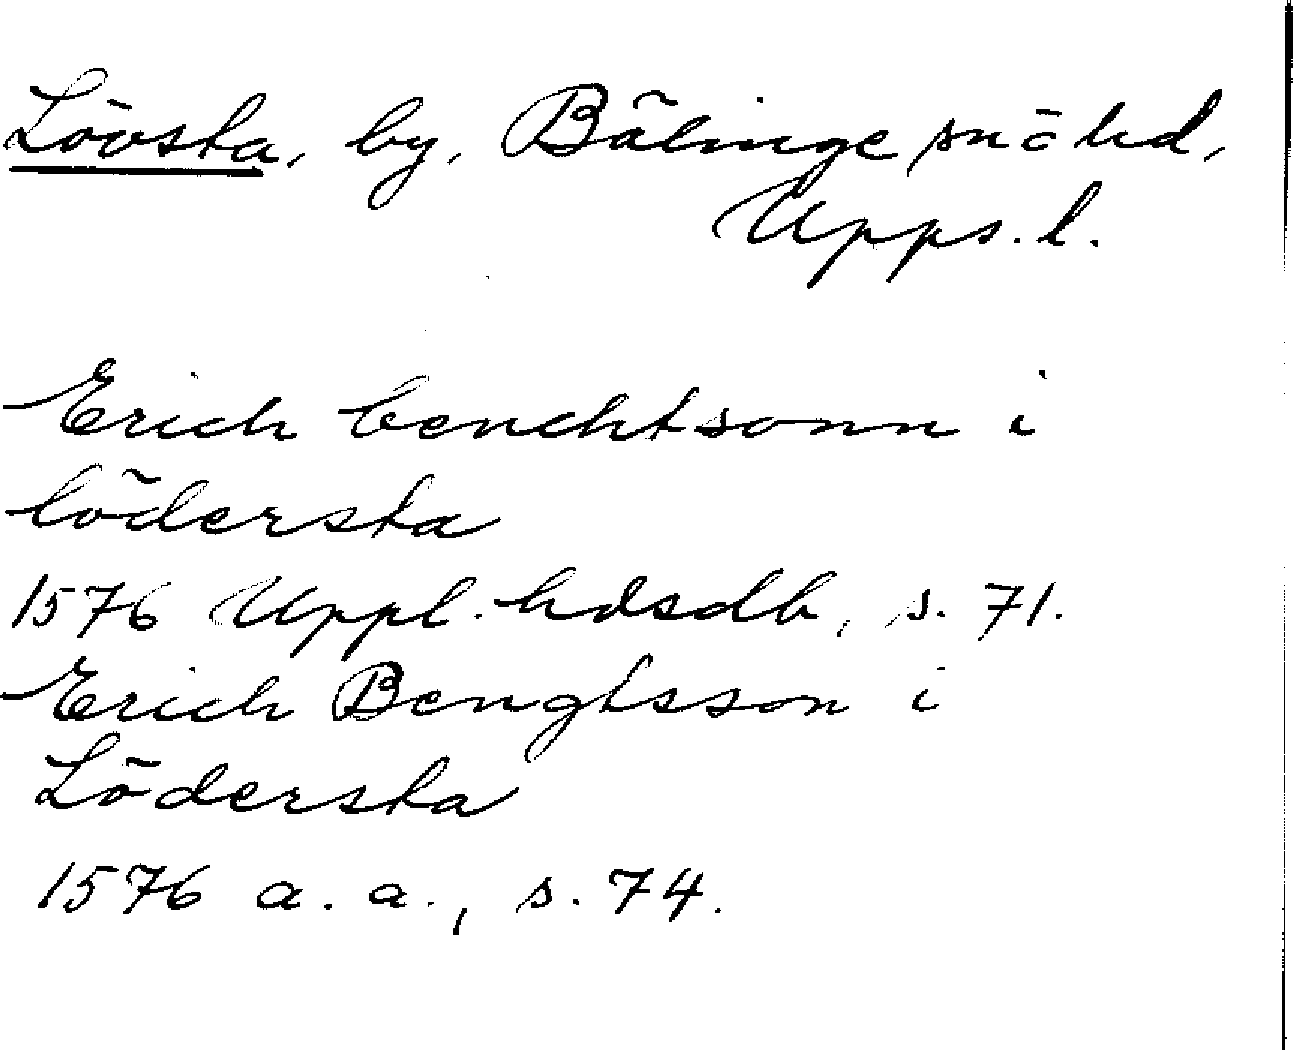 Lövsta, by, Bälinge sn ō hd,
Upps. l.
Erich benchtsonn i
lödersta
1576 Uppl. hdsdb, s. 71.
Erich Bengtsson i
Lödersta
1576 a. a., s. 74.